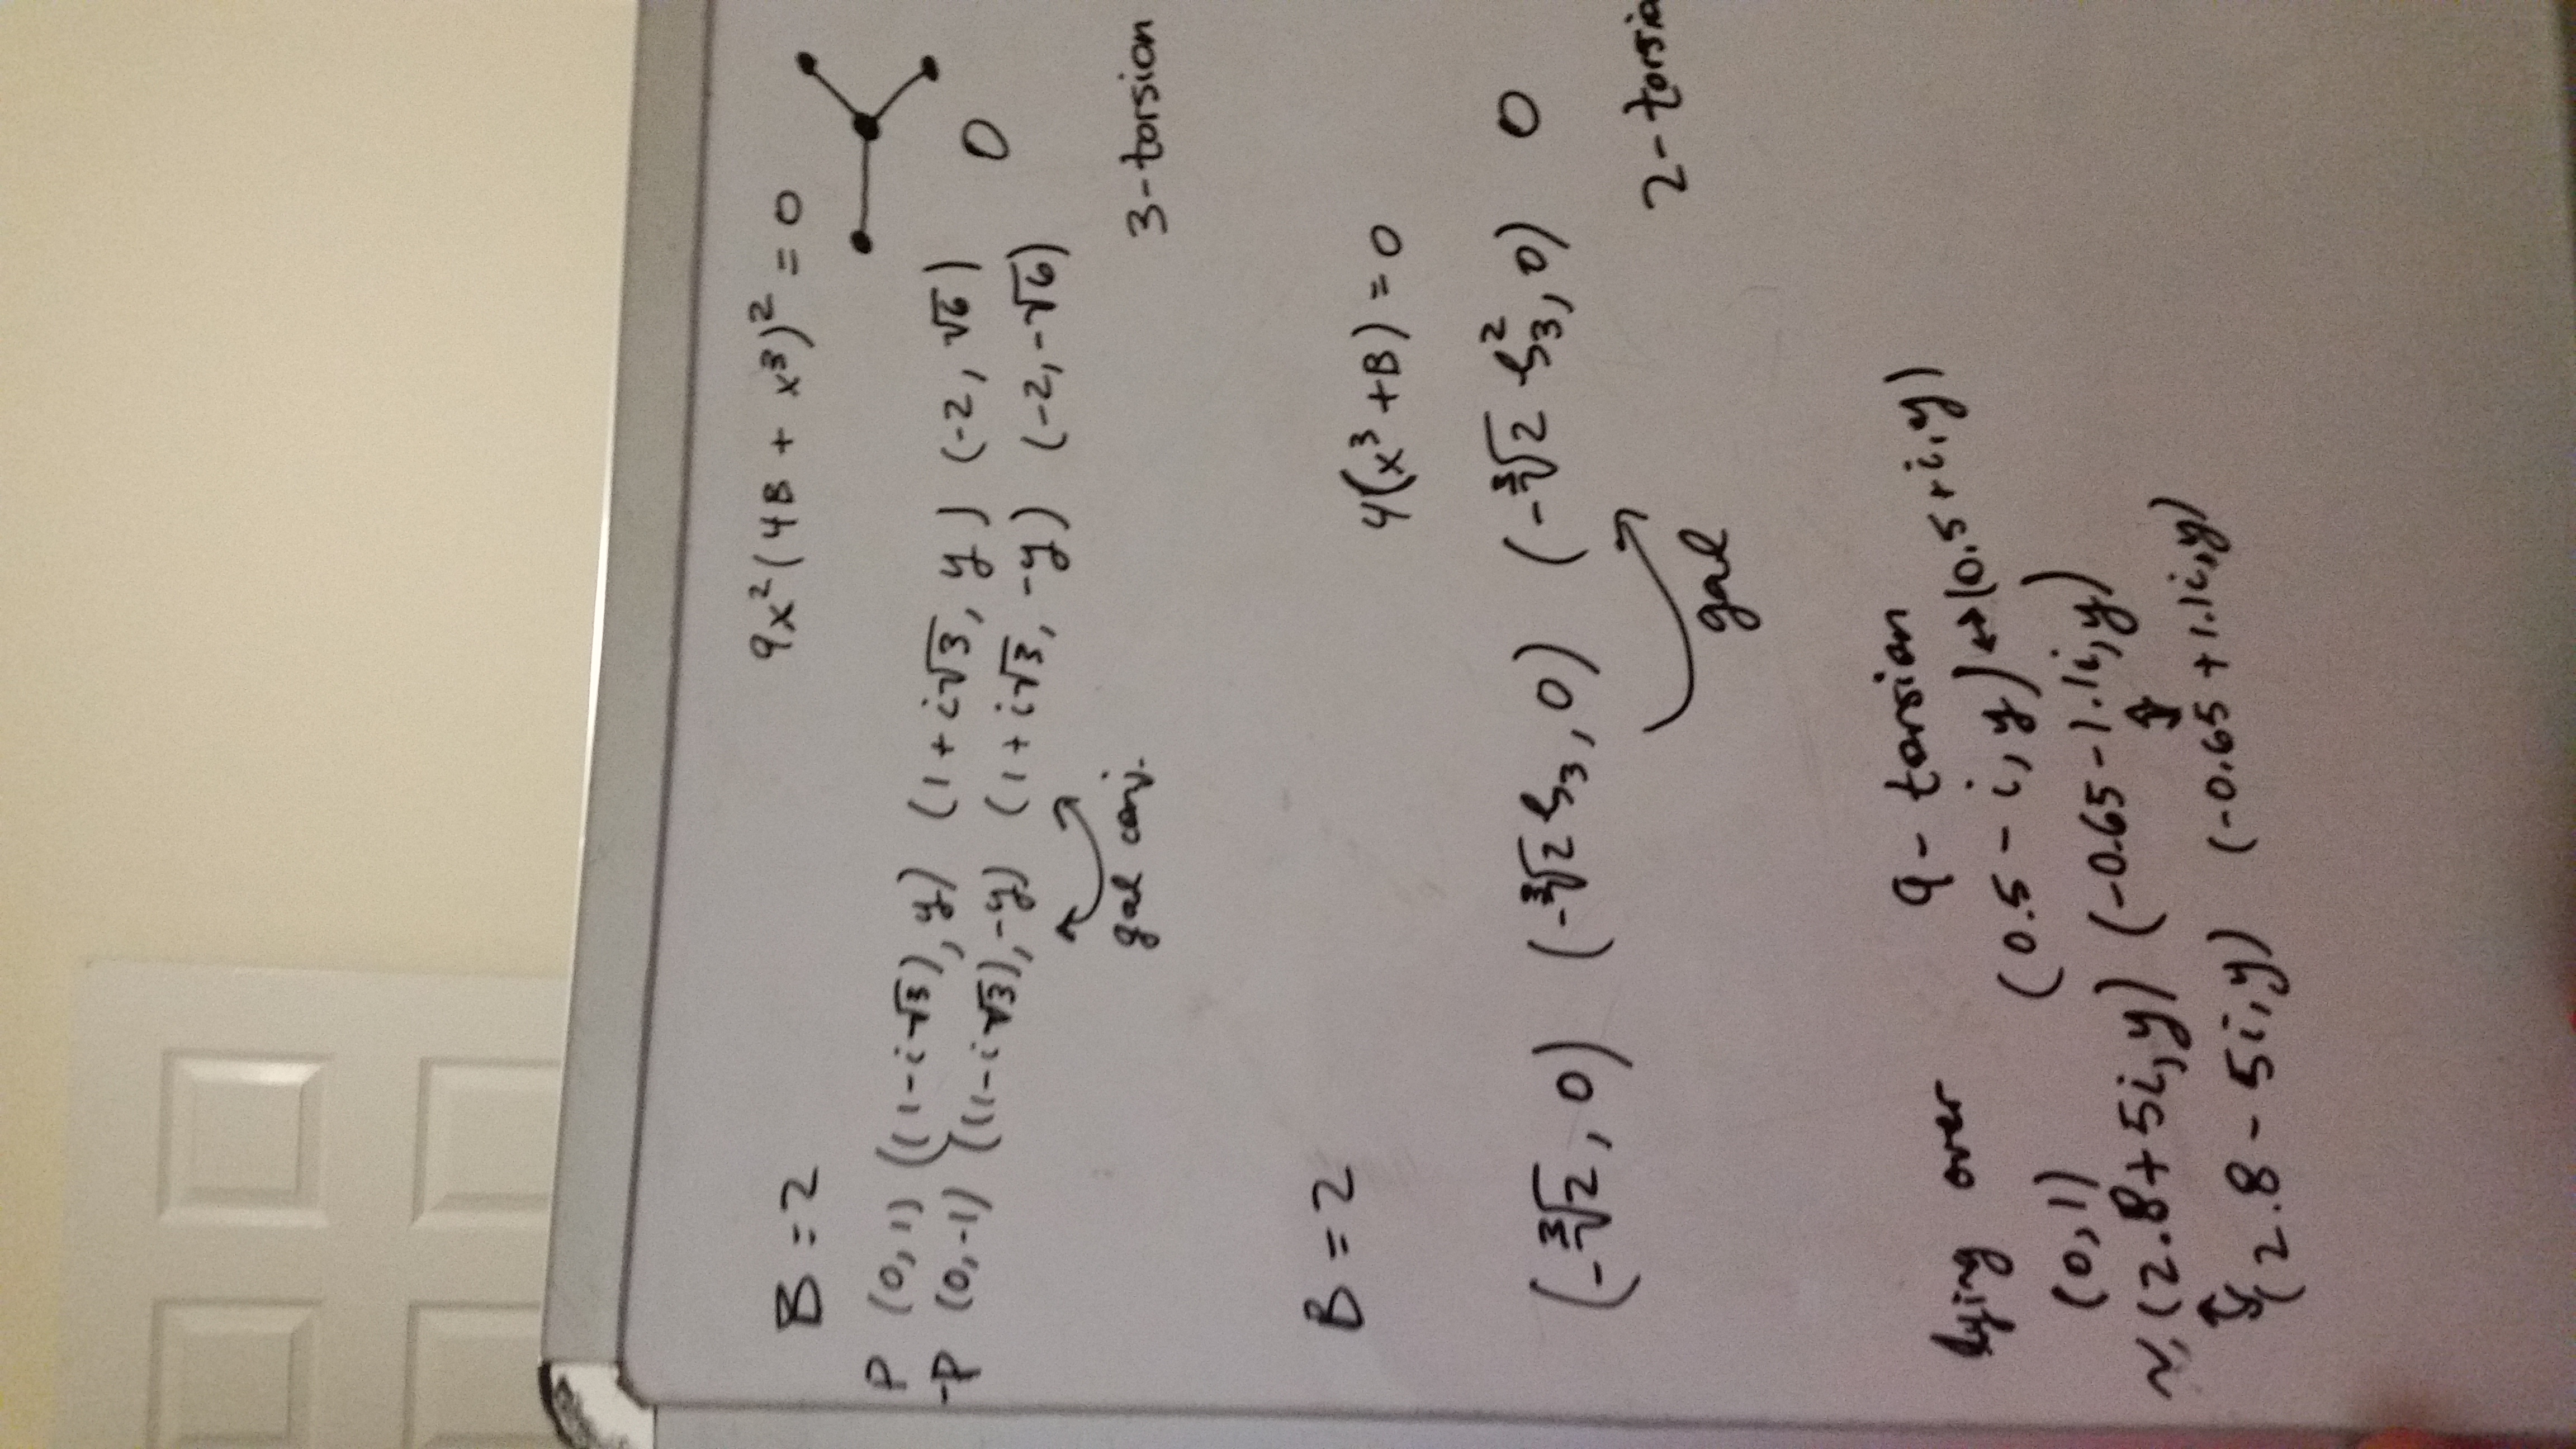 B = 2
9x²(4B + x³)² = 0
P (0, 1) ((1-i√3), y) (1+i√3, y) (-2, √6)
-P (0, -1) ((1-i√3), -y) (1+i√3, -y) (-2, -√6) O
gal conj.
3-torsion
B = 2
4(x³ + B) = 0
(-∛2, 0) (-∛2 ζ₃, 0) (-∛2 ζ₃², 0) O
gal
2-torsio
lying over 9-torsion
(0, 1) (0.5 - i, y) ↔ (0.5 + i, y)
~, (2.8 + 5i, y) (-0.65 - 1.1i, y)
(2.8 - 5i, y) (-0.65 + 1.1i, y)